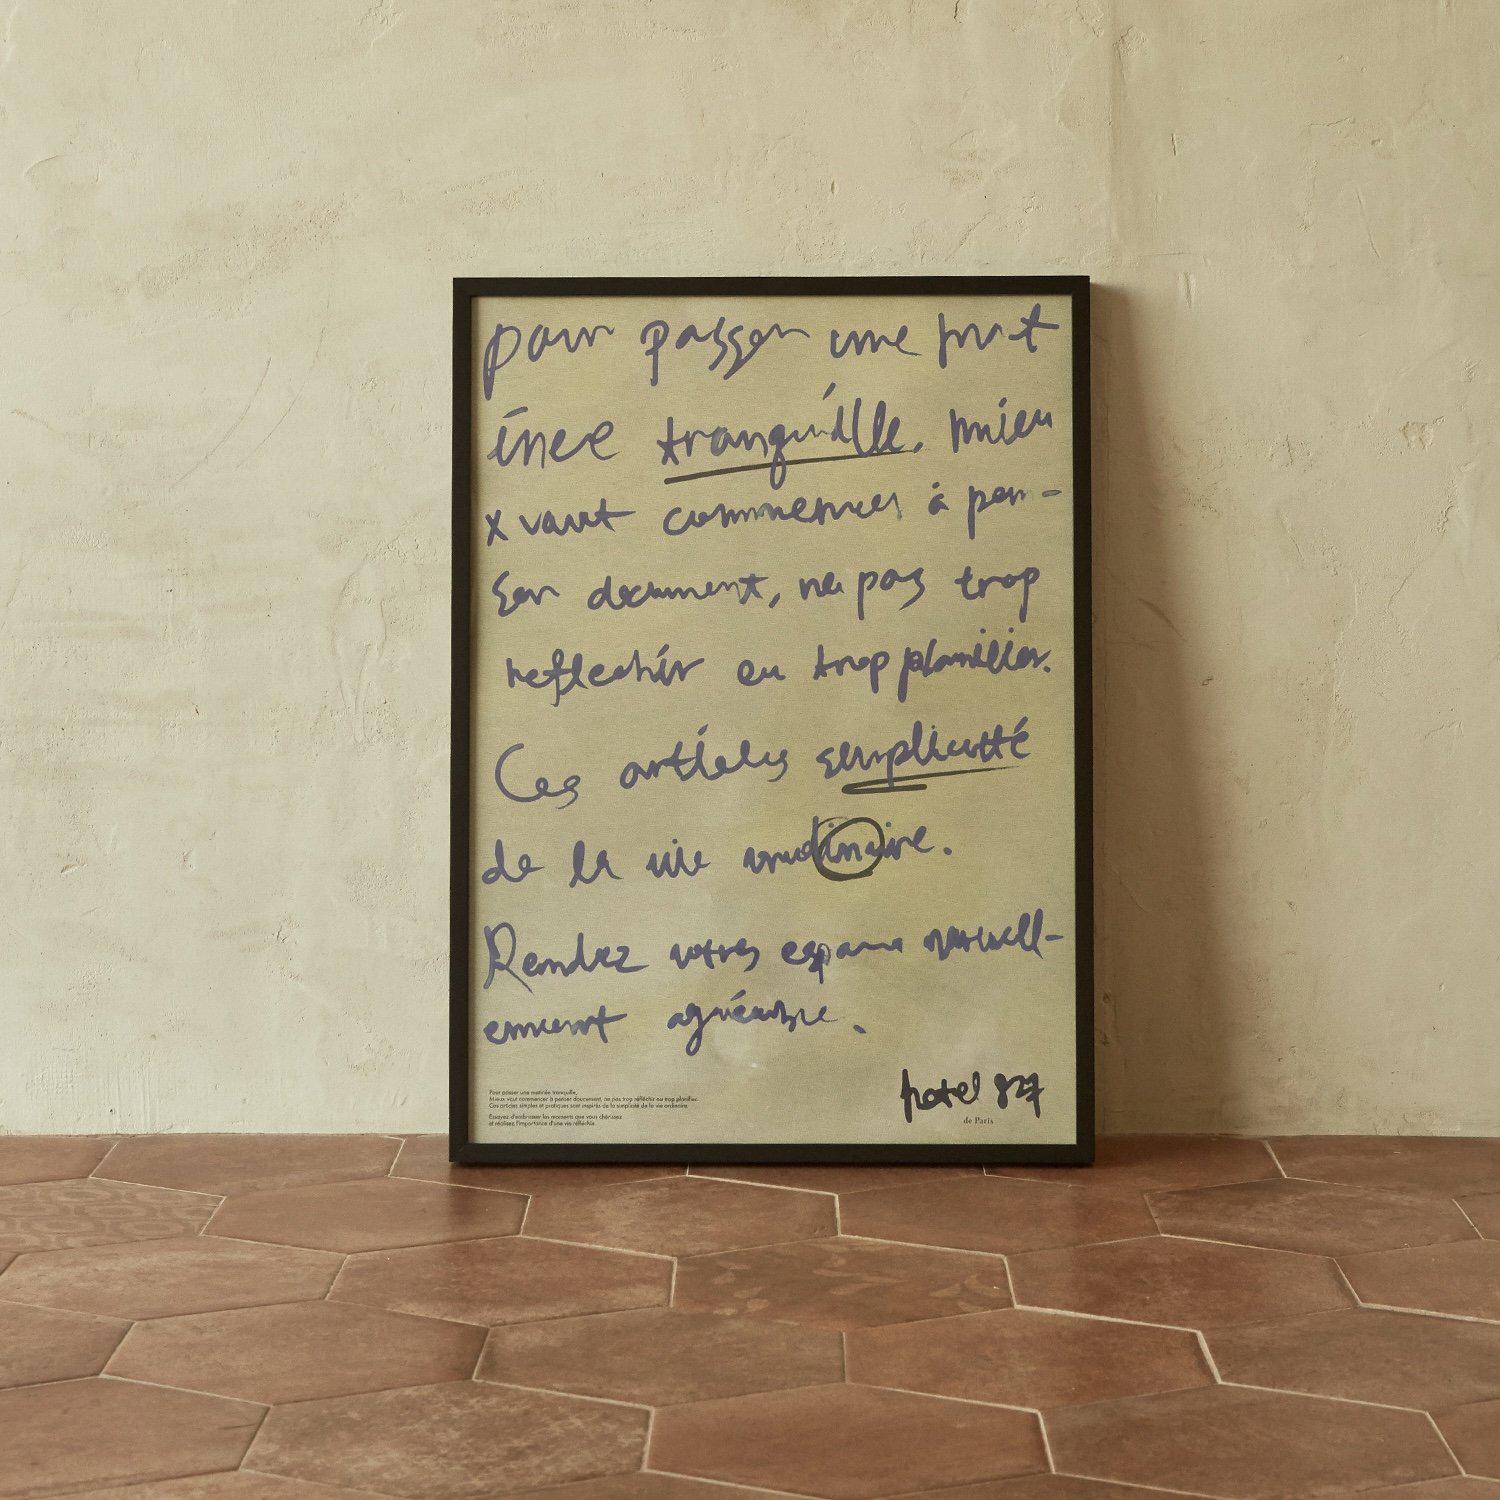 pour passer une mat
inée tranquille. mieu
x vaut commencer à pen-
ser document, ne pas trop
reflechir ou trop planifier.
Ces articles simplicité
de la vie
Rendez votres espace
agréable.
hotel 827
de Paris
Pour passer une matinée tranquille,
Mieux vaut commencer à penser doucement, ne pas trop réfléchir ou trop planifier.
Ces articles simples et pratiques sont inspirés de la simplicité de la vie ordinaire.
Essayez d'embrasser les moments que vous chérissez
et réalisez l'importance d'une vie réfléchie.